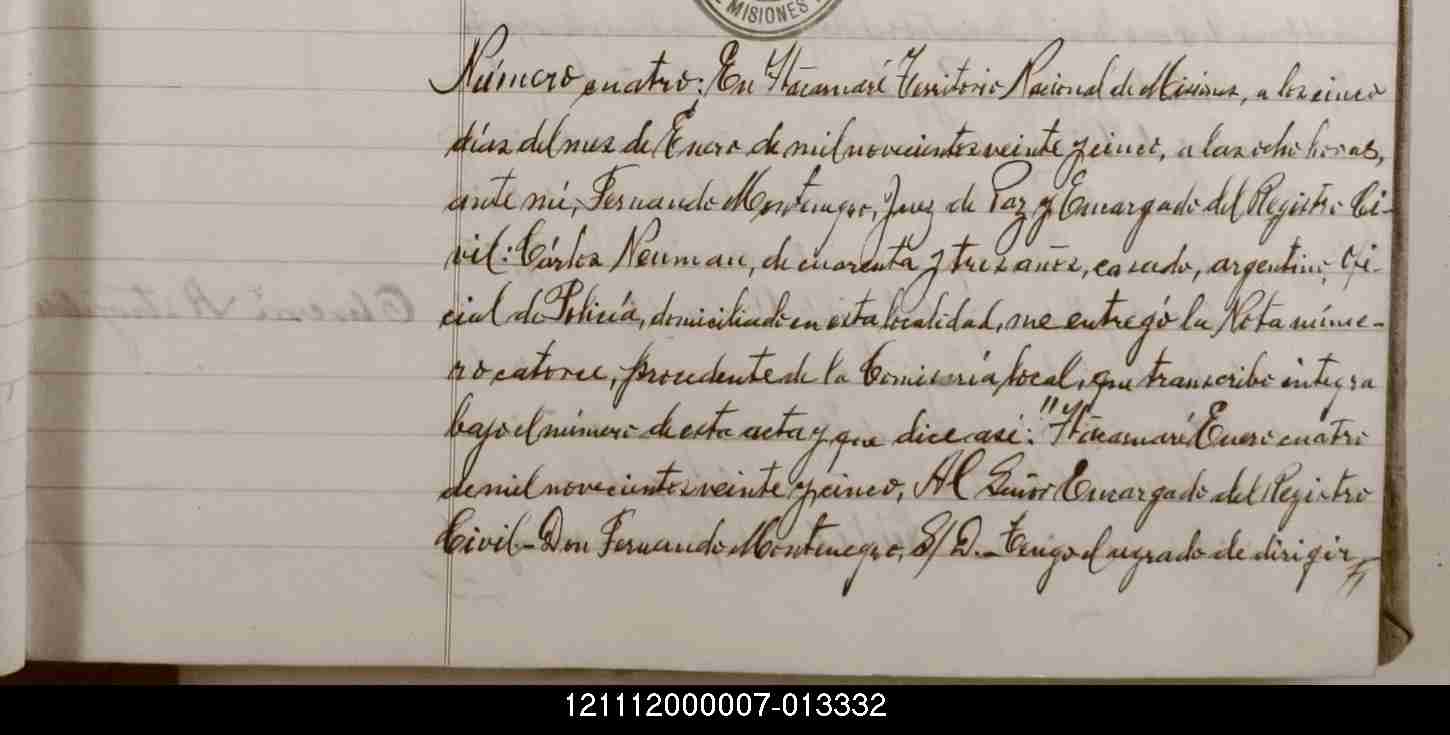 MISIONES
Número cuatro: En Itacaruaré Territorio Nacional de Misiones, a los cinco
días del mes de Enero de mil novecientos veinte y cinco, a las ocho horas,
ante mí, Fernando Montenegro, Juez de Paz y Encargado del Registro Ci-
vil: Cárlos Neuman, de cuarenta y tres años, casado, argentino, Ofi-
cial de Policía, domiciliado en esta localidad, me entregó la Nota núme-
ro catorce, procedente de la Comisería local, que transcribo integra
bajo el número de esta acta y que dice así: "Itacaruaré Enero cuatro
de mil novecientos veinte y cinco, Al Señor Encargado del Registro
Civil - Don Fernando Montenegro, S/D. - Tengo el agrado de dirigir
121112000007-013332